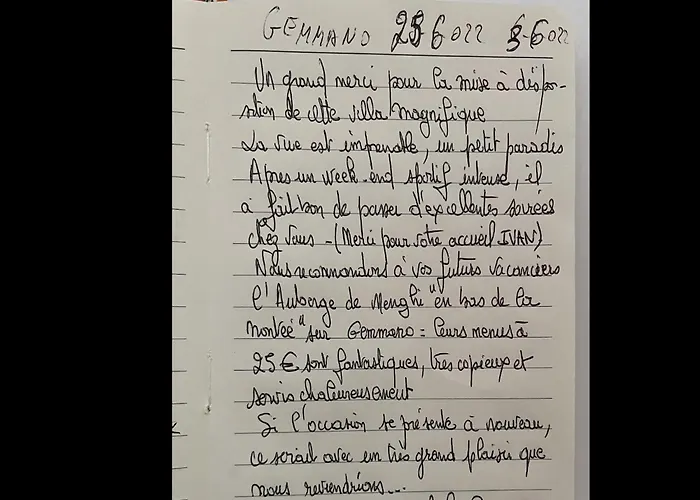 GEMMANO 25 6 022 5-6 022
Un grand merci pour la mise à dispo-
sition de cette villa magnifique
La vue est imprenable, un petit paradis
Apres un week-end sportif intense, il
a fait bon de passer d'excellentes soirées
chez vous - (Merci pour votre accueil IVAN)
Nous recommandons à vos futurs vacanciers
l'Auberge de Menghi "en bas de la
montée" sur Gemmano = leurs menus à
25€ sont fantastiques, très copieux et
servis chaleureusement
Si l'occasion se présente à nouveau,
ce serait avec un très grand plaisir que
nous reviendrions...